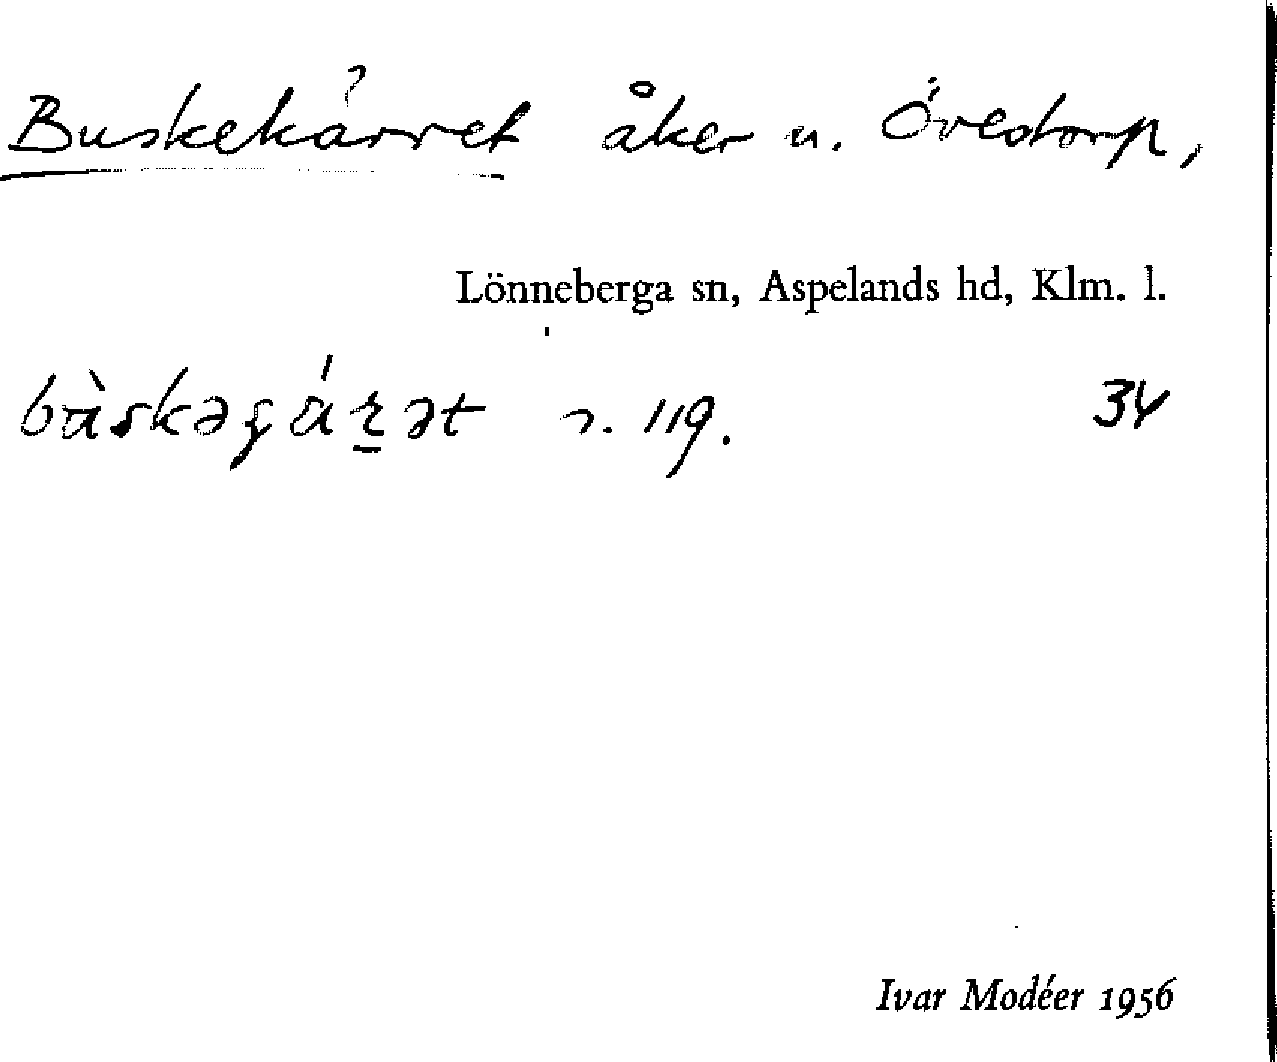 Buskekärret åker u. Övestorp,
Lönneberga sn, Aspelands hd, Klm. l.
n. 119. 34
Ivar Modéer 1956